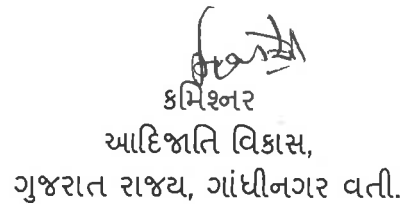 કમિશ્નર
આદિજાતિ વિકાસ,
ગુજરાત રાજય, ગાંધીનગર વતી.